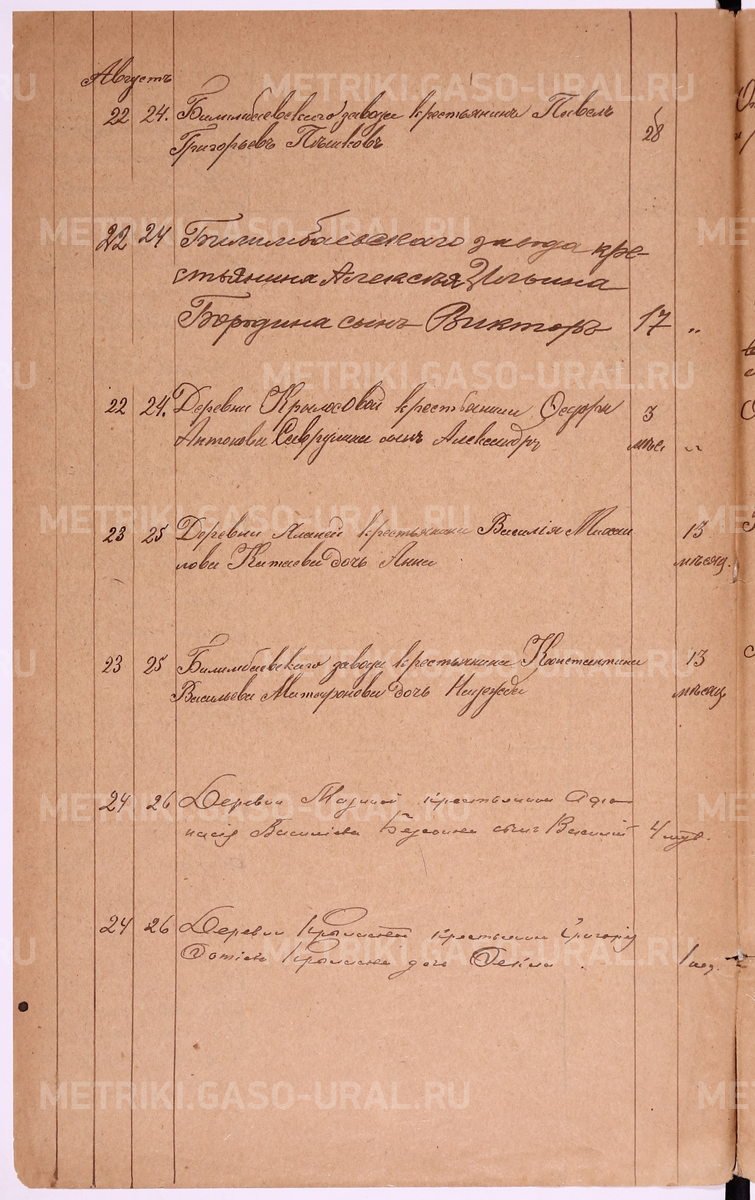 Августъ
22 24. Билимбаевского завода крестьянинъ Павелъ 28
Григорьевъ Пѣшковъ
22 24 Билимбаевскаго завода кре-
стьянина Алексѣя Ильина
Бородина сынъ Викторъ 17 „
22 24. Деревни Крылосовой крестьянина Ѳедора 3
Антонова сынъ Александръ мѣс „
23 25 Деревни крестьянина Василія Михаи 13
лова Китаева дочь Анна мѣсяц.
23 25 Билимбаевского завода крестьянина Константина 13
Васильева Матафонова дочь Надежда мѣсяц
24 26 Деревни крестьянина Афа
насія Василіева сынъ Василій 4
24 26 Деревни крестьянина Григорія
дочь 1 нед.
METRIKI.GASO-URAL.RU